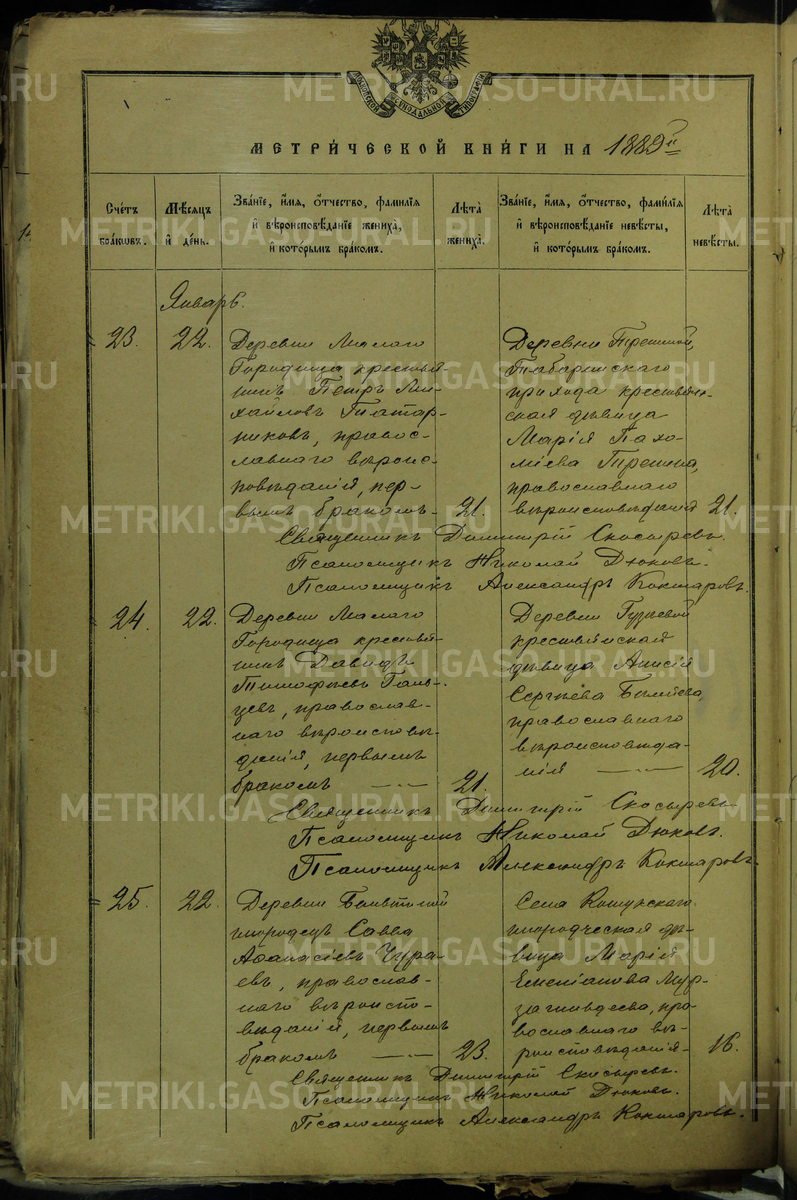 МОСКОВСКОЙ СѴНОДАЛЬНОЙ ТИПОГРАФІИ
МЕТРИ́ЧЕСКОЙ КНИ́ГИ НА 1889й
Сче́тъ бра́ковъ.
Мѣ́сяцъ и де́нь.
Зва́ніе, и́мя, о́тчество, фами́лія и вѣроисповѣ́даніе жениха̀, и кото́рымъ бра́комъ.
Лѣта̀ жениха̀.
Зва́ніе, и́мя, о́тчество, фами́лія и вѣроисповѣ́даніе невѣ́сты, и кото́рымъ бра́комъ.
Лѣта̀ невѣ́сты.
Январь.
23. 22.
Деревни Малаго
Городища крестья-
нинъ Петръ Ми-
хайловъ Татар-
никовъ, правос-
лавнаго вѣроис-
повѣданія, пер-
вымъ бракомъ- 21.
Деревни
Табаринскаго
прихода крестьян-
ская дѣвица
Марія Пахо-
міева
православнаго
вѣроисповѣданія 21.
Священникъ Димитрій Скосыревъ.
Псаломщикъ Николай Дюковъ.
Псаломщикъ Александръ Кокшаровъ.
24. 22.
Деревни Малаго
Городища крестья-
нинъ Давидъ
Тимофеевъ Галь-
цевъ, православ-
наго вѣроисповѣ-
данія, первымъ
бракомъ 21.
Деревни
крестьянская
дѣвица Анисія
Сергѣева
православнаго
вѣроисповѣда-
нія 20.
Священникъ Димитрій Скосыревъ.
Псаломщикъ Николай Дюковъ.
Псаломщикъ Александръ Кокшаровъ.
25. 22.
Деревни
инородецъ Савва
Аѳанасіевъ Чура-
евъ, православ-
наго вѣроиспо-
вѣданія, первымъ
бракомъ 23.
Села Кошукскаго
инородческая дѣ-
вица Марія
Мур-
пра-
вославнаго вѣ-
роисповѣданія- 16.
Священникъ Димитрій Скосыревъ.
Псаломщикъ Николай Дюковъ.
Псаломщикъ Александръ Кокшаровъ.
METRIKI.GASO-URAL.RU